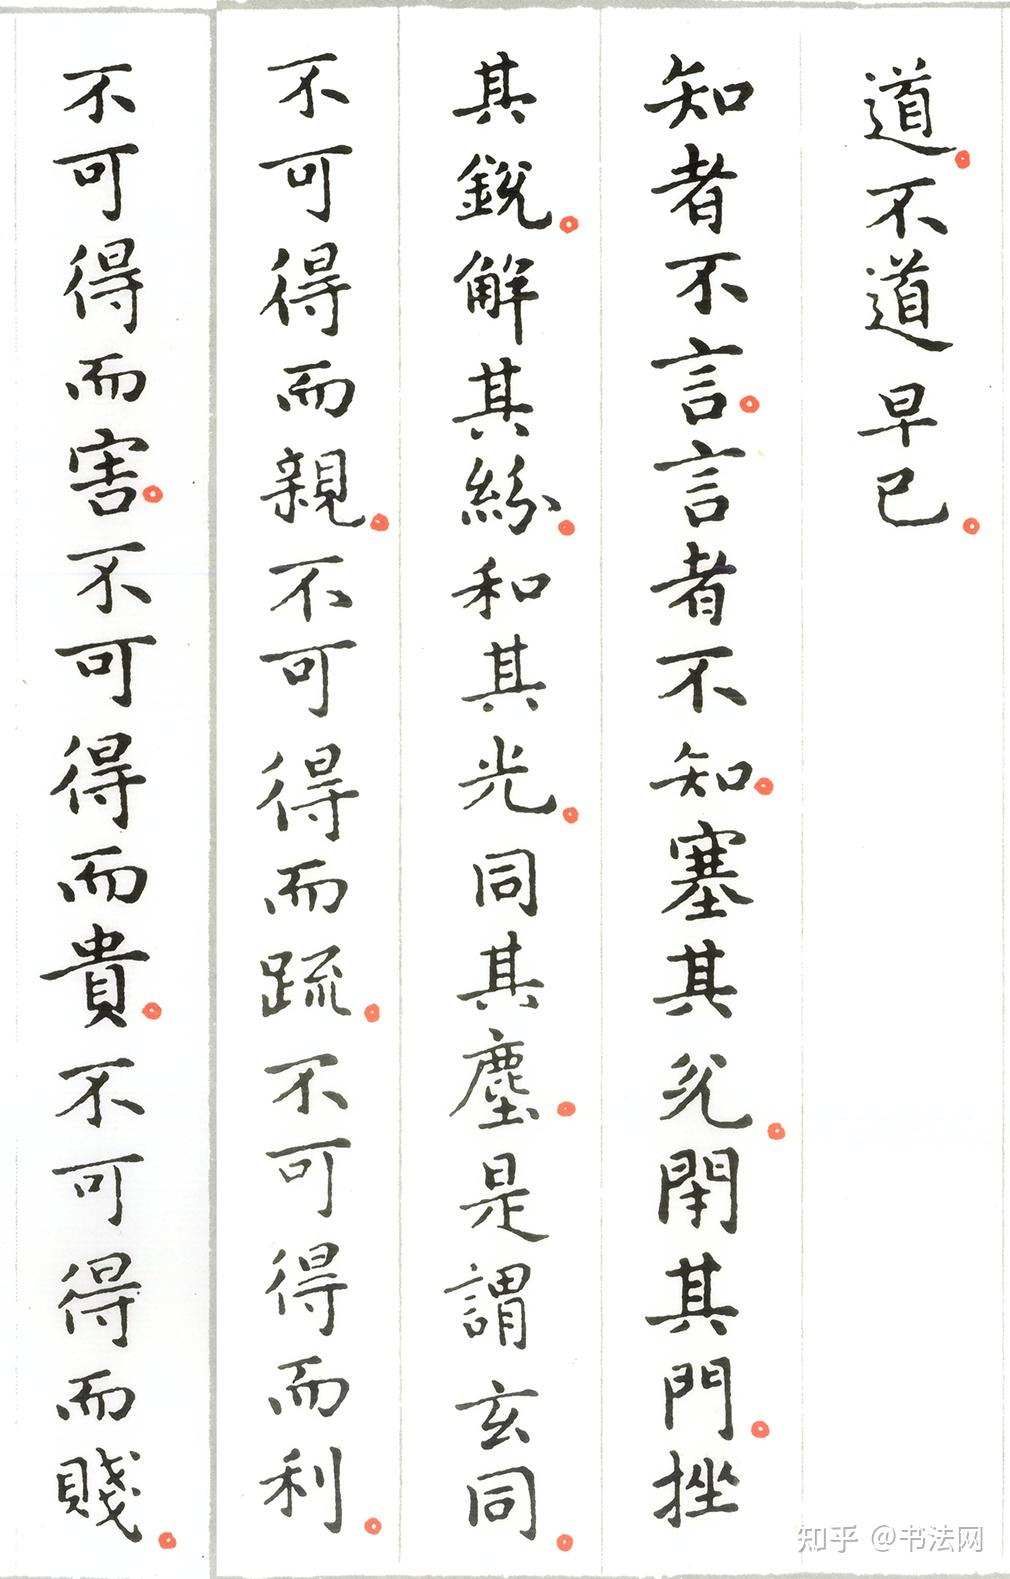 道。不道早已。
知者不言。言者不知。塞其兑。閇其門。挫
其銳。解其紛。和其光。同其塵。是謂玄同。
不可得而親。不可得而疏。不可得而利。
不可得而害。不可得而貴。不可得而賤。
知乎 @书法网